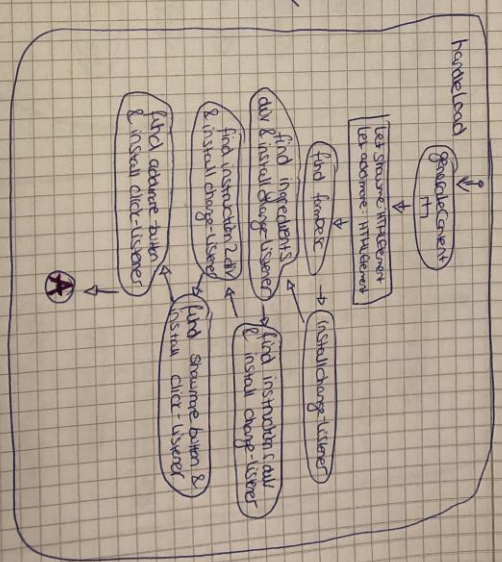 handleLoad
generateContent
let showme: HTMLElement
let addmore: HTMLElement
find formdesc
install change-listener
find ingredients
div & install change-listener
find instructions div
& install change-listener
find instruction2 div
& install change-listener
find showmore button &
install click-listener
find addmore-button
& install click-listener
A